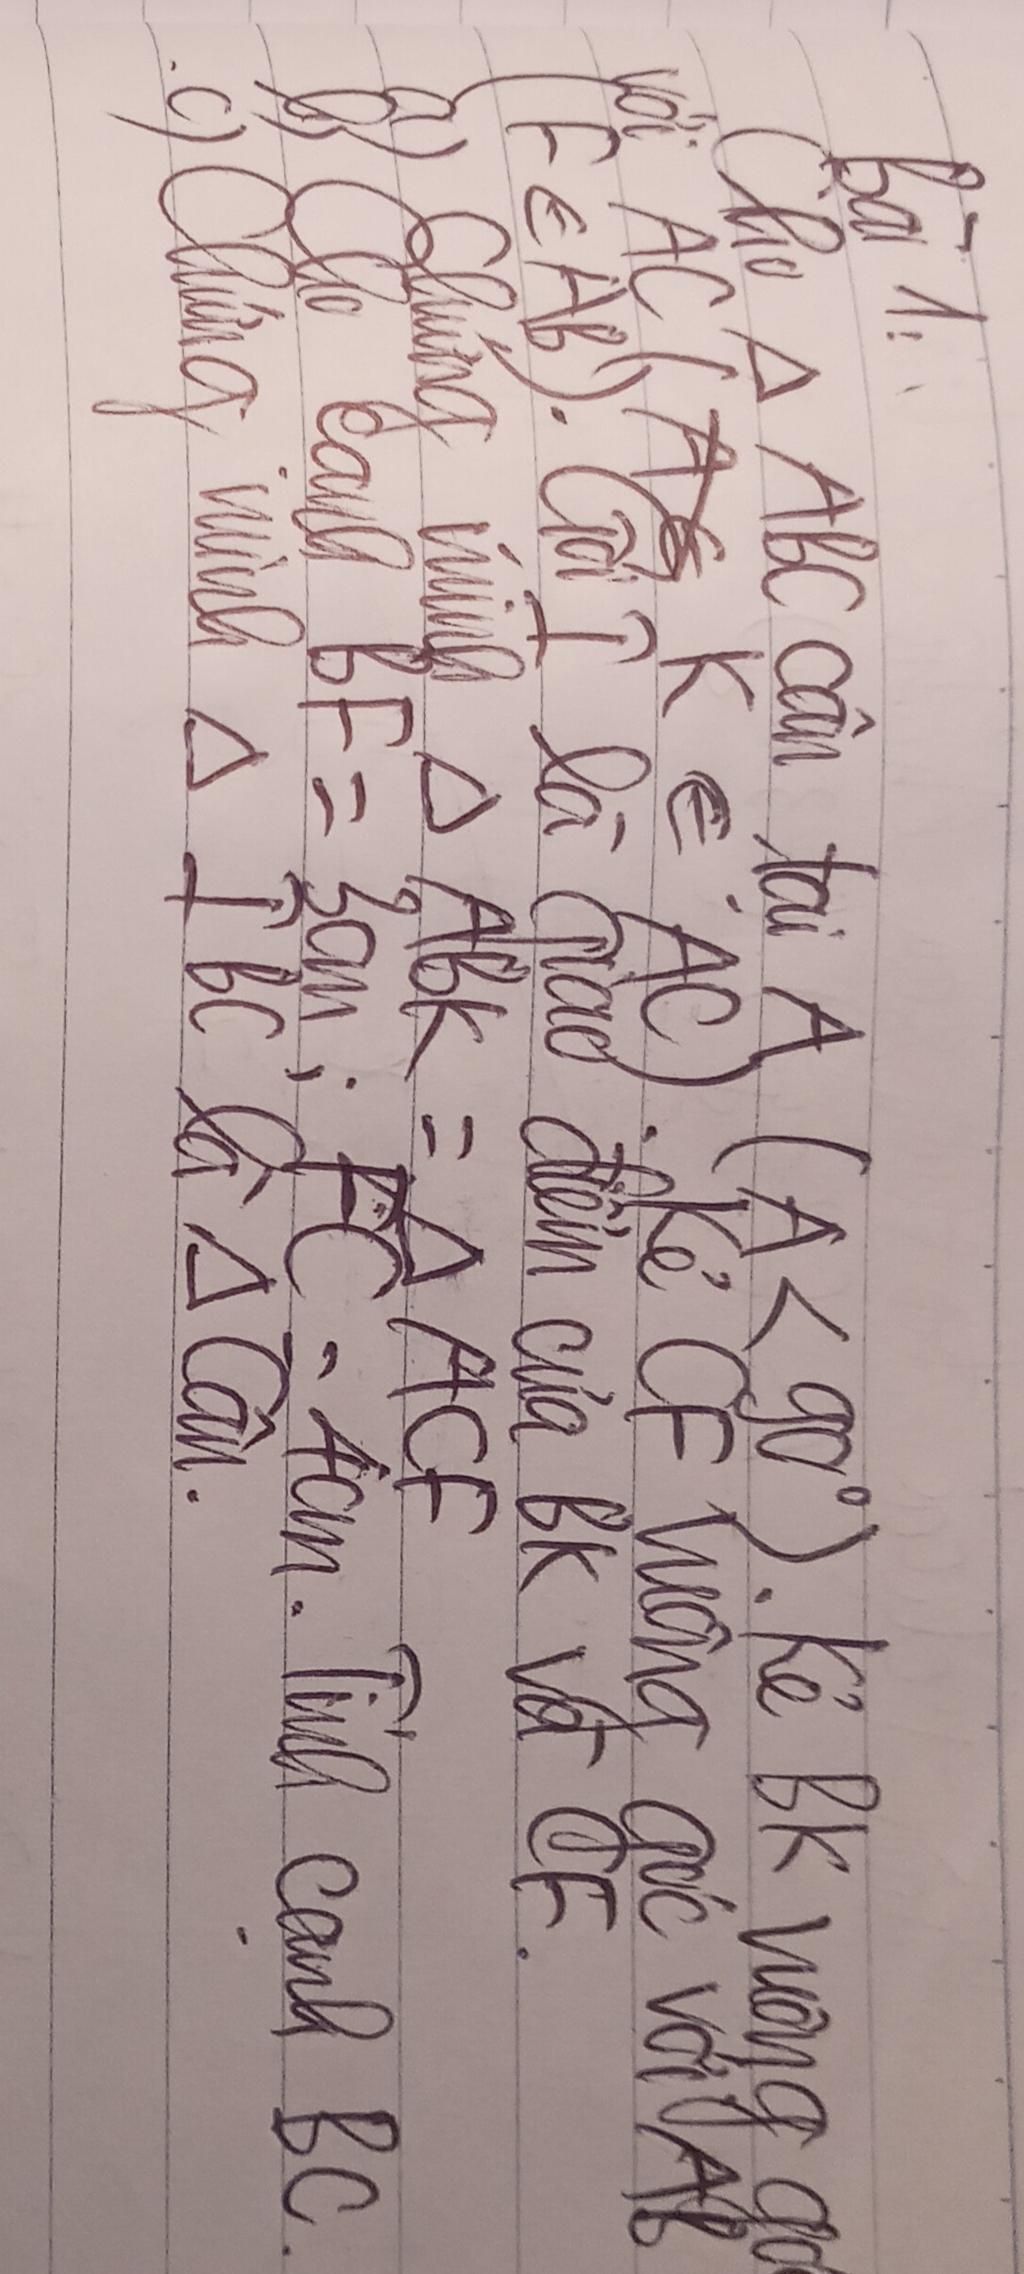 Bài 1:
Cho Δ ABC cân tại A (A < 90°). Kẻ BK vuông góc
với AC ( K ∈ AC). Kẻ CF vuông góc với AB
( F ∈ AB). Gọi I là giao điểm của BK và CF.
a) Chứng minh Δ ABK = Δ ACF
b) Cho cạnh BF = 3cm; FC = 4cm. Tính cạnh BC.
c) Chứng minh Δ IBC là Δ Cân.